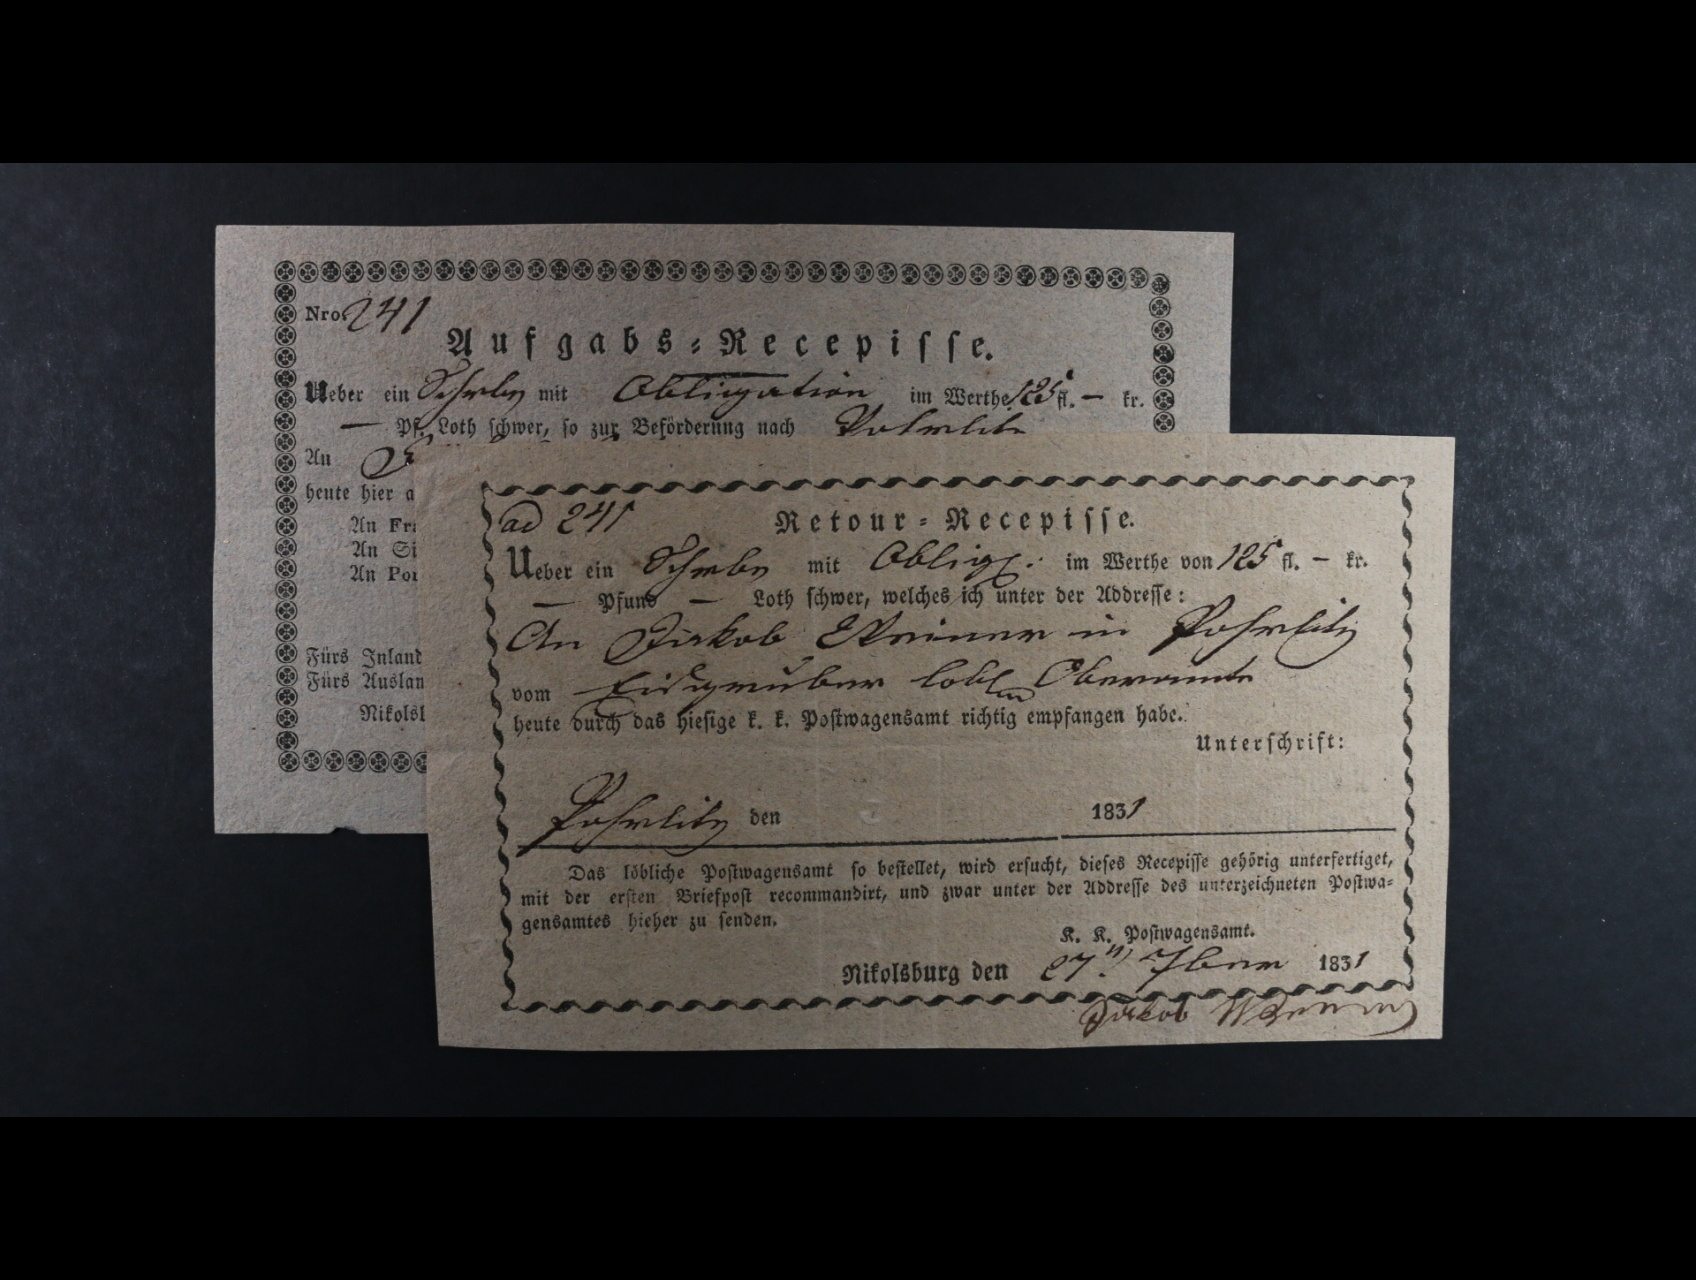 Nro. 241
Aufgabs=Recepisse.
Ueber ein Schrbn mit Obligation im Werthe 125 fl. — kr.
— Pf. Loth schwer, so zur Beförderung nach Pohrlitz
An
heute hier a
An Fr
An Si
An Por
Fürs Inland
Fürs Auslan
Nikolsb
ad 241
Retour=Recepisse.
Ueber ein Schrbn mit Oblig. im Werthe von 125 fl. — kr.
— Pfund — Loth schwer, welches ich unter der Addresse:
An Jakob in Pohrlitz
vom Eisgruber löbl Oberamte
heute durch das hiesige k. k. Postwagensamt richtig empfangen habe.
Unterschrift:
Pohrlitz den 1831
Das löbliche Postwagensamt so bestellet, wird ersucht, dieses Recepisse gehörig unterfertiget,
mit der ersten Briefpost recommandirt, und zwar unter der Addresse des unterzeichneten Postwa=
gensamtes hieher zu senden.
K. K. Postwagensamt.
Nikolsburg den 27 7ber 1831
Jakob